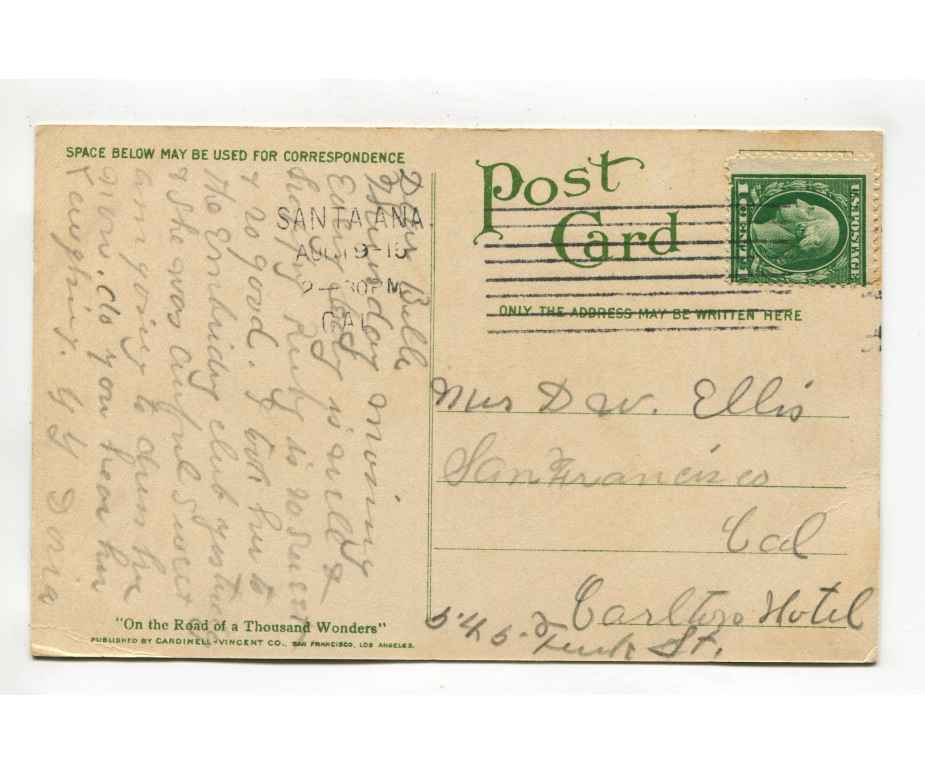 SPACE BELOW MAY BE USED FOR CORRESPONDENCE
Dear Belle
Thursday morning
Every body is well &
happy Ruby is so sweet
& so good. I took her to
the Embroidery club yester
& she was awful sweet
am going to dress her
now. do you hear her
laughing. Dora
"On the Road of a Thousand Wonders"
PUBLISHED BY CARDINELL-VINCENT CO., SAN FRANCISCO, LOS ANGELES.
SANTA ANA
AUG 19 15
2 30PM
CAL
Post
Card
ONLY THE ADDRESS MAY BE WRITTEN HERE
U.S. POSTAGE
1 CENT 1
Mrs D W. Ellis
San Francisco
Cal
Carlton Hotel
545 Turk St.